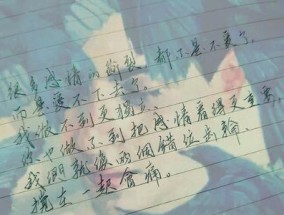 很多感情的断裂，都不是不爱了，
而是爱不下去了。
我做不到更独立，
你也做不到把感情看得又重要，
我们就像两個錯位齿輪。
撓在一起會痛。